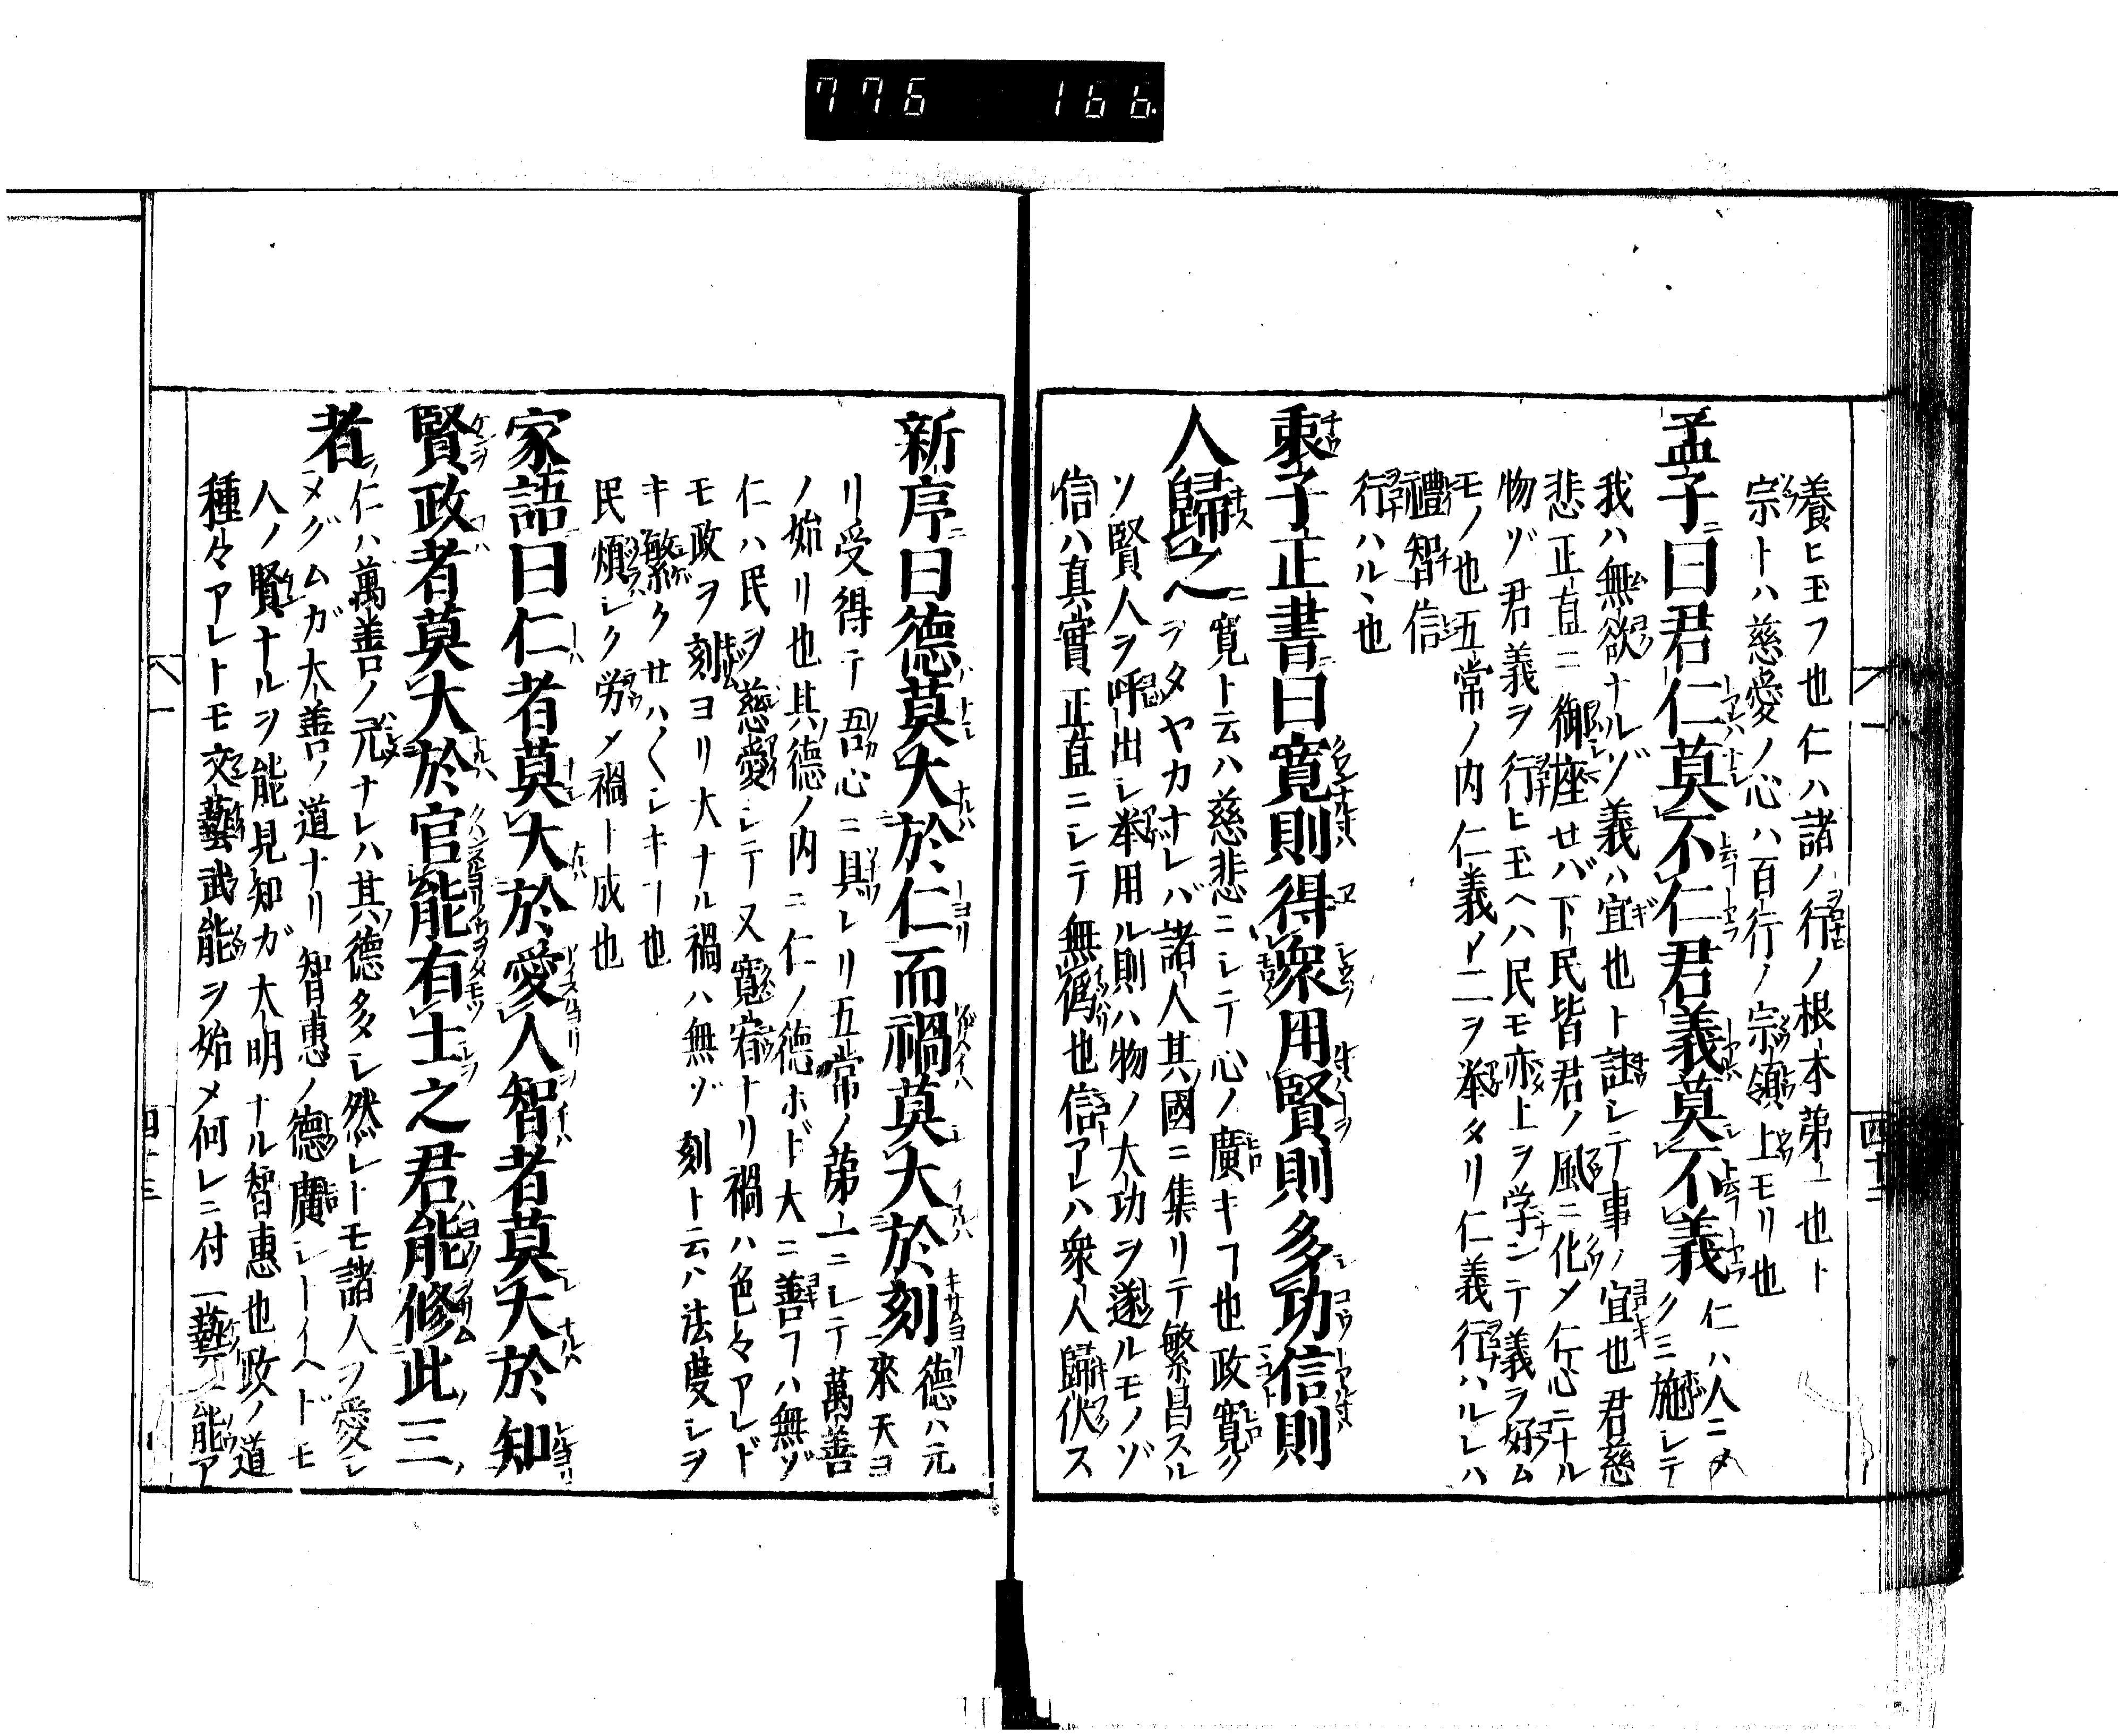 776 166
養ヒ玉フ也仁ハ諸ノ行ノ根本第一也ト
宗トハ慈愛ノ心ハ百行ノ宗領上モリ也
孟子曰君仁莫不仁君義莫不義 仁ハ人ニメ
クミ施レテ
我ハ無欲ナルゾ義ハ宜也ト註レテ事ノ宜也君慈
悲正直ニ御座セバ下民皆君ノ風ニ化メ仁心ニナル
物ゾ君義ヲ行ヒ玉ヘハ民モ亦上ヲ学ンテ義ヲ好ム
モノ也五常ノ内仁義ノ二ヲ挙タリ仁義行ハルレハ
禮智信
行ハル丶也
衷子正書曰寛則得衆用賢則多功信則
人歸之 ニ寛ト云ハ慈悲ニレテ心ノ廣キヿ也政寛ク
ヲタヤカナレバ諸人其國ニ集リテ繁昌スル
ソ賢人ヲ呼出レ挙用ル則ハ物ノ大功ヲ遂ルモノゾ
信ハ真實正直ニレテ無僞也信アレハ衆人歸伏ス
新序曰德莫大於仁而禍莫大於刻 德ハ元
來天ヨ
リ受得テ吾心ニ具レリ五常ノ第一ニレテ萬善
ノ始リ也其德ノ内ニ仁ノ德ホド大ニ善ヿハ無ゾ
仁ハ民ヲ慈愛レテ又寛宥ナリ禍ハ色々アレド
モ政ヲ刻ヨリ大ナル禍ハ無ゾ刻ト云ハ法度シヲ
キ繁クせハ〱レキヿ也
民煩レク労メ禍ト成也
家語曰仁者莫大於愛人智者莫大於知
賢政者莫大於官能有士之君能修此三
者 仁ハ萬善ノ元ナレハ其德多レ然レトモ諸人ヲ愛レ
メグムガ大善ノ道ナリ智惠ノ德廣レトイヘドモ
人ノ賢ナルヲ能見知ガ大明ナル智惠也政ノ道
種々アレトモ文藝武能ヲ始メ何レニ付一藝一能ア